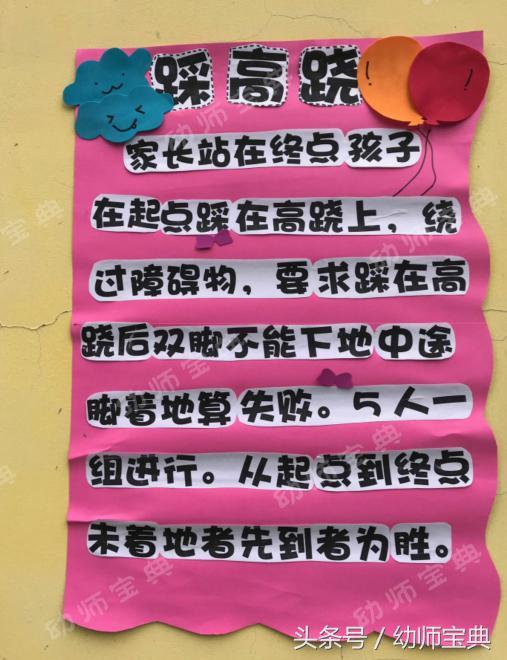 踩高跷
家长站在终点孩子
在起点踩在高跷上，绕
过障碍物，要求踩在高
跷后双脚不能下地中途
脚着地算失败。5人一
组进行。从起点到终点
未着地者先到者为胜。
头条号 / 幼师宝典